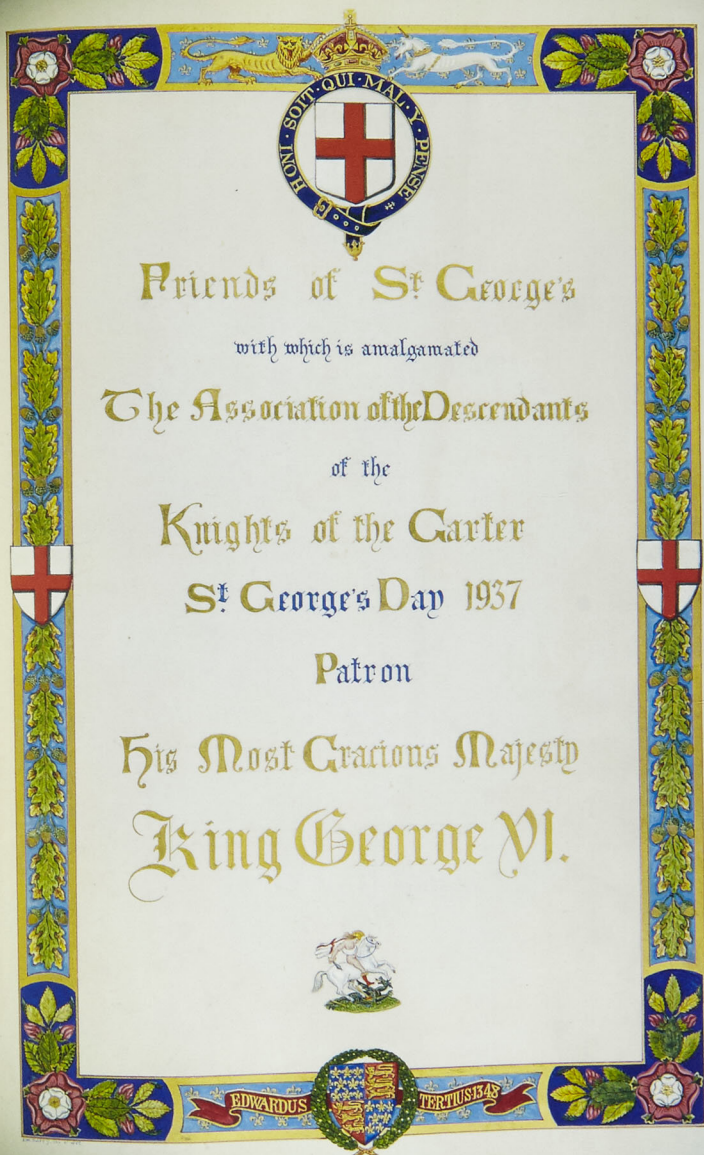 HONI · SOIT · QUI · MAL · Y · PENSE
Friends of St. George's
with which is amalgamated
The Association of the Descendants
of the
Knights of the Garter
St. George's Day 1937
Patron
His Most Gracious Majesty
King George VI.
EDWARDUS TERTIUS·1348